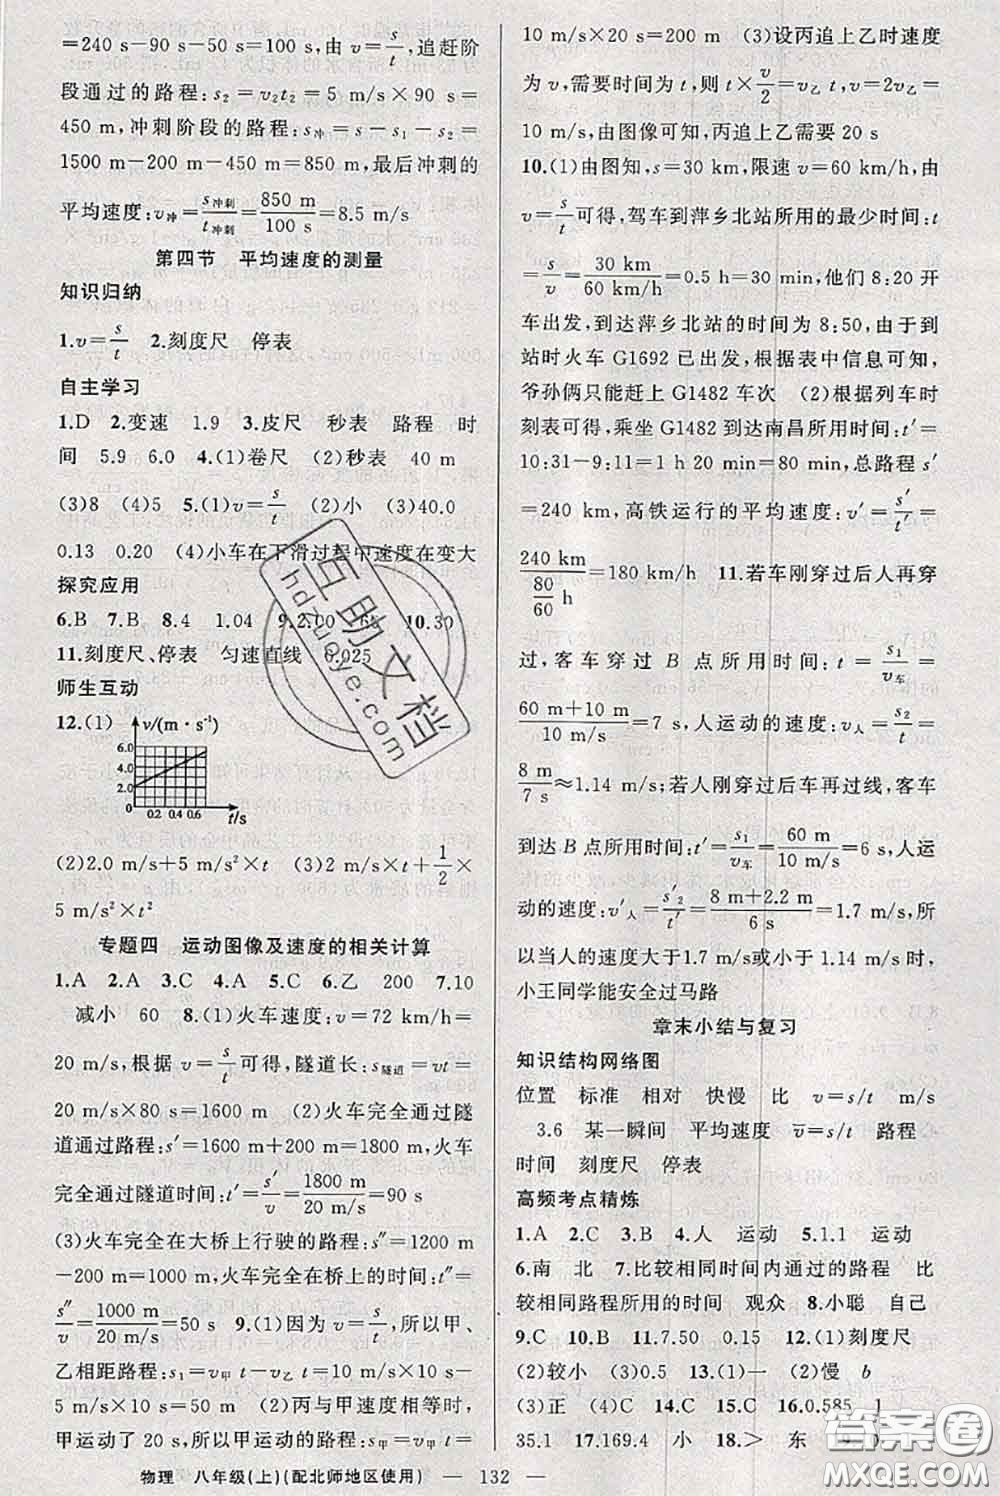 =240 s-90 s-50 s=100 s,由 v=s/t,追赶阶
段通过的路程:s₂=v₂t₂=5 m/s×90 s=
450 m,冲刺阶段的路程:s冲=s-s₁-s₂=
1500 m-200 m-450 m=850 m,最后冲刺的
平均速度:v冲=s冲刺/t冲刺=850 m/100 s=8.5 m/s
第四节 平均速度的测量
知识归纳
1.v=s/t 2.刻度尺 停表
自主学习
1.D 2.变速 1.9 3.皮尺 秒表 路程 时
间 5.9 6.0 4.(1)卷尺 (2)秒表 40 m
(3)8 (4)5 5.(1)v=s/t (2)小 (3)40.0
0.13 0.20 (4)小车在下滑过程中速度在变大
探究应用
6.B 7.B 8.4 1.04 9.2.00 65 10.30
11.刻度尺、停表 匀速直线 0.025
师生互动
12.(1) v/(m·s⁻¹)
6.0
4.0
2.0
0.2 0.4 0.6 t/s
(2)2.0 m/s+5 m/s²×t (3)2 m/s×t+1/2
×5 m/s²×t²
专题四 运动图像及速度的相关计算
1.A 2.A 3.C 4.A 5.C 6.乙 200 7.10
减小 60 8.(1)火车速度:v=72 km/h=
20 m/s,根据 v=s/t可得,隧道长:s隧道=vt=
20 m/s×80 s=1600 m (2)火车完全通过隧
道通过路程:s′=1600 m+200 m=1800 m,火车
完全通过隧道时间:t′=s′/v=1800 m/20 m/s=90 s
(3)火车完全在大桥上行驶的路程:s″=1200 m
-200 m=1000 m,火车完全在桥上的时间:t″=
s″/v=1000 m/20 m/s=50 s 9.(1)因为 v=s/t,所以甲、
乙相距路程:s₁=v甲 t-v乙 t=20 m/s×10 s-
5 m/s×10 s=150 m (2)丙与甲速度相等时,
甲运动了 20 s,所以甲运动的路程:s甲=v甲 t=
10 m/s×20 s=200 m (3)设丙追上乙时速度
为 v,需要时间为 t,则 t×v/2=v乙 t,v=2v乙=
10 m/s,由图像可知,丙追上乙需要 20 s
10.(1)由图知,s=30 km,限速 v=60 km/h,由
v=s/t可得,驾车到萍乡北站所用的最少时间:t
=s/v=30 km/60 km/h=0.5 h=30 min,他们 8:20 开
车出发,到达萍乡北站的时间为 8:50,由于到
站时火车 G1692 已出发,根据表中信息可知,
爷孙俩只能赶上 G1482 车次 (2)根据列车时
刻表可得,乘坐 G1482 到达南昌所用时间:t′=
10:31-9:11=1 h 20 min=80 min,总路程 s′
=240 km,高铁运行的平均速度:v′=s′/t′=
240 km/(80/60 h)=180 km/h 11.若车刚穿过后人再穿
过,客车穿过 B 点所用时间:t=s₁/v车=
60 m+10 m/10 m/s=7 s,人运动的速度:v人=s₂/t=
8 m/7 s≈1.14 m/s;若人刚穿过后车再过线,客车
到达 B 点所用时间:t′=s₁/v车=60 m/10 m/s=6 s,人运
动的速度:v′人=s′₂/t′=8 m+2.2 m/6 s=1.7 m/s,所
以当人的速度大于1.7 m/s或小于 1.14 m/s时,
小王同学能安全过马路
章末小结与复习
知识结构网络图
位置 标准 相对 快慢 比 v=s/t m/s
3.6 某一瞬间 平均速度 v̄=s/t 路程
时间 刻度尺 停表
高频考点精炼
1.A 2.C 3.B 4.人 运动 5.1.1 运动
6.南 北 7.比较相同时间内通过的路程 比
较相同路程所用的时间 观众 8.小聪 自己
9.C 10.B 11.7.50 0.15 12.(1)刻度尺
(2)较小 (3)0.5 13.(1)一 (2)慢 b
(3)正 14.C 15.C 16.0.585 1
35.1 17.169.4 小 18.> 东
物理 八年级(上)(配北师地区使用) — 132 —
互助文档
hdzuoye.com
答案圈
MXQE.COM